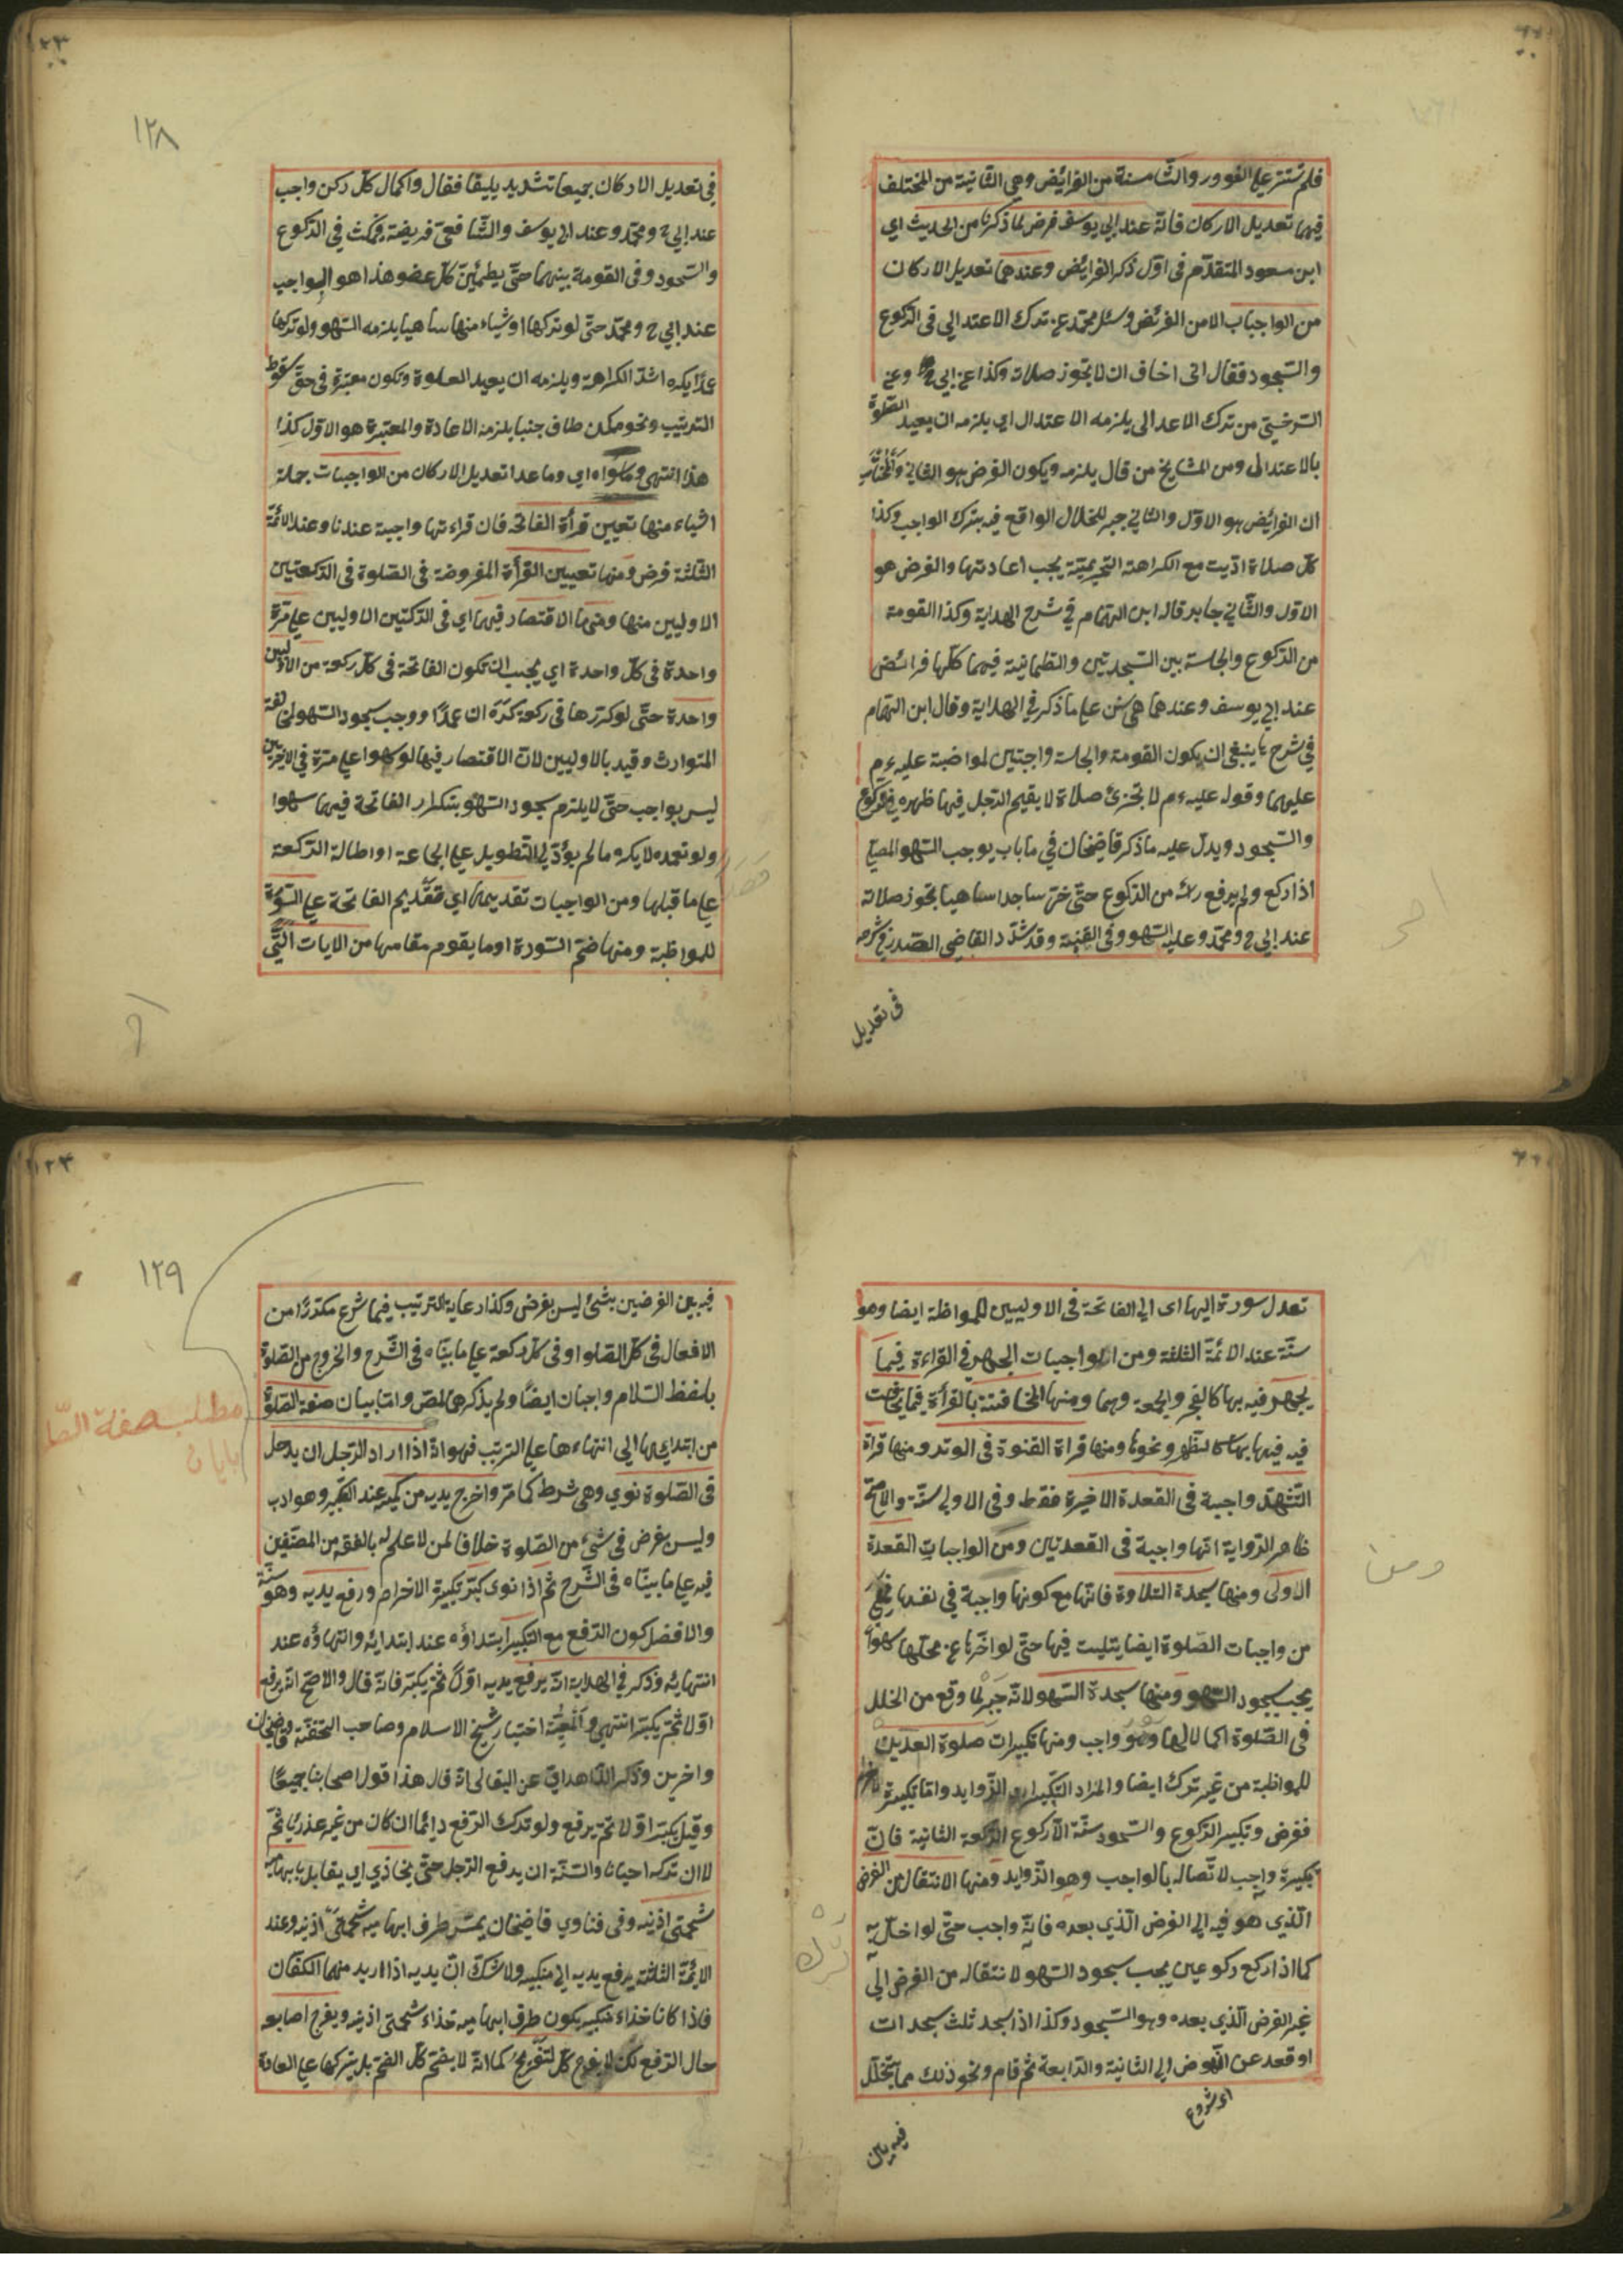 فلم تستتر على الفور والثامنة من الفرائض وهي الثانية من المختلف
فيهما تعديل الاركان فانه عند ابي يوسف فرض لما ذكرنا من الحديث اي
ابن مسعود المتقدم في اول ذكر الفرائض وعندهما تعديل الاركان
من الواجبات لا من الفرئض وسئل محمد عن ترك الاعتدال في الركوع
والسجود فقال اني اخاف ان لا تجوز صلاته وكذا عن ابي ح وعن
السرخسي من ترك الاعدال يلزمه الاعتدال اي يلزمه ان يعيد الصلوة
بالاعتدال ومن المشايخ من قال يلزمه ويكون الفرض هو الثاني والمختار
ان الفرائض هو الاول والثاني جبر للخلال الواقع فيه بترك الواجب وكذا
كل صلاة اديت مع الكراهة التحريمية يجب اعادتها والفرض هو
الاول والثاني جابر قاله ابن الهمام في شرح الهداية وكذا القومة
من الركوع والجلسة بين السجدتين والطمانية فيهما كلها فرائض
عند ابي يوسف وعندهما هي سنن على ما ذكر في الهداية وقال ابن الهمام
في شرحها ينبغي ان يكون القومة والجلسة واجبتين لمواضبة عليه ءم
عليهما وقوله عليه ءم لا تجزئ صلاة لا يقيم الرجل فيها ظهره في الركوع
والسجود ويدل عليه ما ذكر قاضيخان في ما باب يوجب السهو المصلي
اذا ركع ولم يرفع رأسه من الركوع حتى خر ساجدا ساهيا تجوز صلاته
عند ابي ح ومحمد وعليه السهو وفي القنية وقد شدد القاضي الصدر في شرحه
في تعديل
١٢٨
في تعديل الاركان جميعا تشديد يليقا فقال واكمال كل ركن واجب
عند ابي ح ومحمد وعند ابي يوسف والشافعي فريضة فيمكث في الركوع
والسجود وفي القومة بينهما حتى يطمئن كل عضو هذا هو الواجب
عند ابي ح ومحمد حتى لو تركها او شياء منها ساهيا يلزمه السهو ولو تركها
عمدا يكره اشد الكراهة ويلزمه ان يعيد الصلوة وتكون معتبرة في حق سقوط
الترتيب ونحوه كمن طاف جنبا يلزمه الاعادة والمعتبرة هو الاول كذا
هذا انتهى وما سواه اي وما عدا تعديل الاركان من الواجبات جملة
اشياء منها تعيين قرأة الفاتحة فان قراءتها واجبة عندنا وعند الائمة
الثلثة فرض ومنها تعيين القرأة المفروضة في الصلوة في الركعتين
الاوليين منها ومنها الاقتصار فيهما اي في الركتين الاوليين على مرة
واحدة في كل واحدة اي يجب ان تكون الفاتحة في كل ركعة من الاوليين
واحدة حتى لو كررها في ركعة كره ان عمدا ووجب سجود السهو لمخالفة
المتوارث وقيد بالاوليين لان الاقتصار فيهما لو سهوا على مرة في الاخريين
ليس بواجب حتى لا يلزم سجود السهو بتكرار الفاتحة فيهما سهوا
ولو تعمده لا يكره مالم يؤد الى التطويل على الجاعة او اطالة الركعة
على ما قبلها ومن الواجبات تقديمها اي تقديم الفاتحة على السورة
للمواظبة ومنها ضم السورة او ما يقوم مقامها من الايات التي
تعدل سورة اليها اى الى الفاتحة في الاوليين للمواظبة ايضا وهو
سنة عند الائمة الثلثة ومن الواجبات الجهر في القراءة فيما
يجهر فيه بها كالفجر والجمعة وهما ومنها المخافتة بالقرأة فيما يخافت
فيه فيها بها كالظهر ونحوها ومنها قراة القنوة في الوتر ومنها قراة
التشهد واجبة في القعدة الاخيرة فقط وفي الاولى سنة والاصح
ظاهر الرواية انها واجبة في القعدتين ومن الواجبات القعدة
الاولى ومنها سجدة التلاوة فانها مع كونها واجبة في نفسها فهي
من واجبات الصلوة ايضا يتليت فيها حتى لو اخرها عن محلها سهوا
يجب سجود السهو ومنها سجدة السهو لانه جبر لما وقع من الخلل
في الصلوة اكمالا لها وهو واجب ومنها تكبيرات صلوة العديين
للمواظبة من غير ترك ايضا والمراد التكبيرات الزوايد واما تكبيرة
ففرض وتكبير الركوع والسجود سنة الا ركوع الركعة الثانية فان
تكبيرة واجب لاتصاله بالواجب وهو الزوايد ومنها الانتقال من الفرض
الذي هو فيه الى الفرض الذي بعده فانه واجب حتى لو اخل به
كما اذا ركع ركوعين يجب سجود السهو لانتقاله من الفرض الى
غير الفرض الذي بعده وهو السجود وكذا اذا سجد ثلث سجدات
او قعد عن النهوض الى الثانية والرابعة ثم قام ونحو ذلك مما يتخلل
اى شروع
فيه بين
ومن
ترك
١٢٩
فيه بين الفرضين بشئ ليس بفرض وكذا رعاية الترتيب فيما شرع مكررا من
الافعال في كل الصلوا وفي كل ركعة على ما بيناه في الشرح والخروج من الصلوة
بلفظ السلام واجبان ايضا ولم يذكرهما المص واما بيان صفة الصلوة
من ابتدايها الى انتهاءها على الترتيب فهو انه اذا اراد الرجل ان يدخل
في الصلوة نوى وهي شرط كما مر واخرج يديه من كميه عند التكبير وهو ادب
وليس بفرض في شئ من الصلوة خلافا لمن لا علم له بالفقه من المصنفين
فيه على ما بيناه في الشرح ثم اذا نوى كبر تكبيرة الاخرام ورفع يديه وهو سنة
والافضل كون الرفع مع التكبير ابتداؤه عند ابتدائه وانتهاؤه عند
انتهائه وذكر في الهداية انه يرفع يديه اولا ثم يكبر فانه قال والاصح انه يرفع
اولا ثم يكبر انتهى والمعية اختيار شيخ الاسلام وصاحب التحفة وقاضيخان
واخرين وذكر الزاهدي عن البقالي انه قال هذا قول اصحابنا جميعا
وقيل يكبر اولا ثم يرفع ولو ترك الرفع دائما ان كان من غير عذر ياثم
لا ان تركه احيانا والسنة ان يرفع الرجل حتى يحاذي اي يقابل بابهاميه
شحمتي اذنيه وفي فتاوي قاضيخان يمس طرف ابهاميه شحمتي اذنيه وعند
الايمة الثلثة يرفع يديه الى منكبيه ولا شك ان يديه اذا اريد منهما الكفان
فاذا كانا حذاء منكبيه يكون طرف ابهاميه حذاء شحمتى اذنيه ويفرج اصابعه
حال الرفع لكن لا يفرج كل التفريج كما انه لا يضم كل الضم بل يتركها على العادة
مطلب صفة الصلا